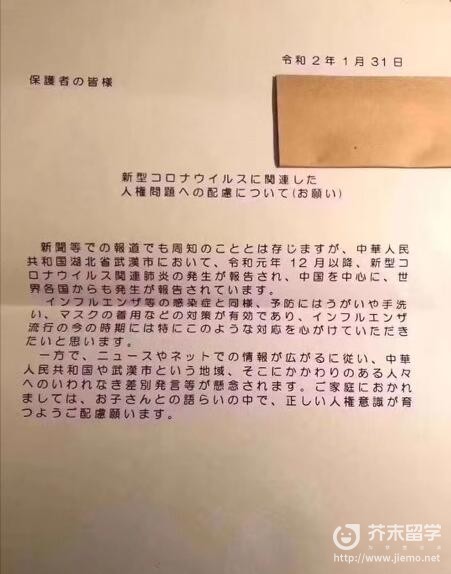 令和２年１月３１日
保護者の皆様
新型コロナウイルスに関連した
人権問題への配慮について(お願い)
新聞等での報道でも周知のこととは存じますが、中華人民
共和国湖北省武漢市において、令和元年１２月以降、新型コ
ロナウイルス関連肺炎の発生が報告され、中国を中心に、世
界各国からも発生が報告されています。
インフルエンザ等の感染症と同様、予防にはうがいや手洗
い、マスクの着用などの対策が有効であり、インフルエンザ
流行の今の時期には特にこのような対応を心がけていただき
たいと思います。
一方で、ニュースやネットでの情報が広がるに従い、中華
人民共和国や武漢市という地域、そこにかかわりのある人々
へのいわれなき差別発言等が懸念されます。ご家庭におかれ
ましては、お子さんとの語らいの中で、正しい人権意識が育
つようご配慮願います。
芥末留学
www.jiemo.net